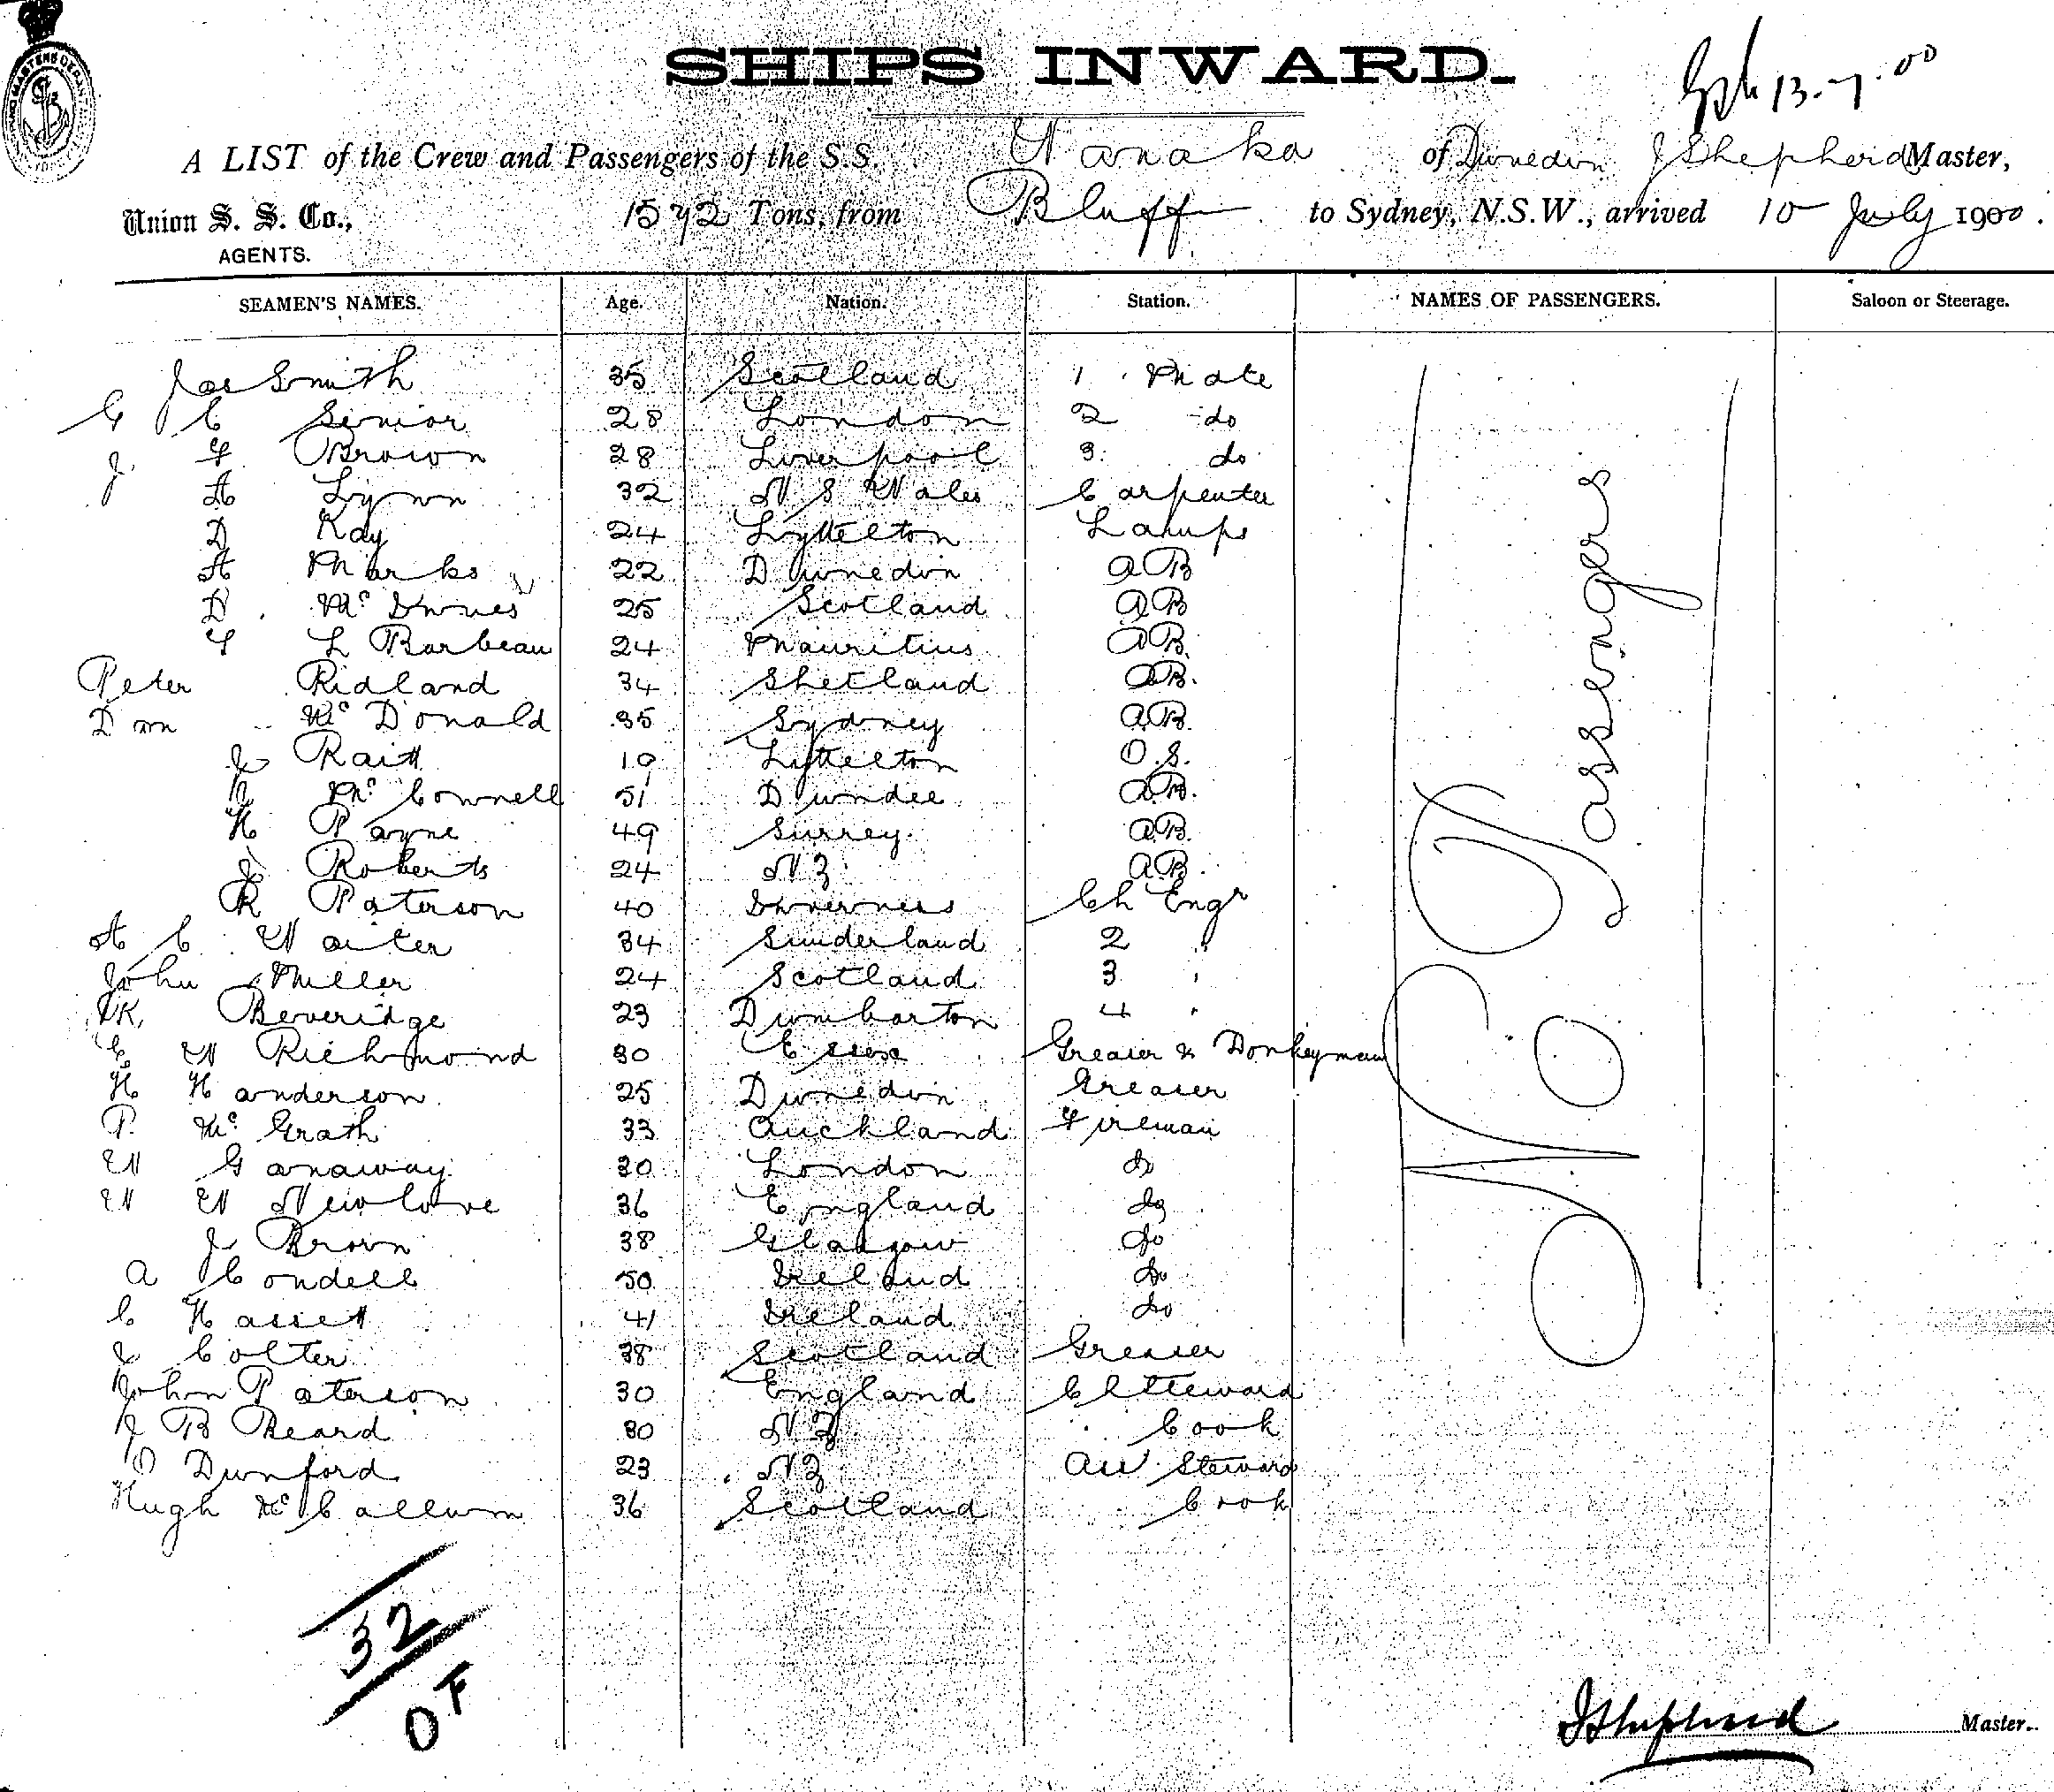 SHIPS INWARD.
13-7-00
A LIST of the Crew and Passengers of the S.S. Wanaka of Dunedin J Shepherd Master,
Union S. S. Co., 1572 Tons, from Bluff to Sydney, N.S.W., arrived 10 July 1900.
AGENTS.
SEAMEN'S NAMES. Age. Nation. Station. NAMES OF PASSENGERS. Saloon or Steerage.
Jas Smith 35 Scotland 1 Mate
C C Senior 28 London 2 do
J F Brown 28 Liverpool 3 do
A Lynn 32 N S Wales Carpenter
D Kay 24 Lyttelton Lamps
A Marks 22 Dunedin AB
D. McInnes 25 Scotland AB
F L Barbeau 24 Mauritius AB.
Peter Ridland 34 Shetland AB.
Dan McDonald 35 Sydney AB.
J Raitt 19 Lyttelton O.S.
McConnell 51 Dundee AB.
H Payne 49 Surrey AB.
J Roberts 24 NZ AB.
R Paterson 40 Inverness Ch Engr
A C Waiter 34 Sunderland 2 "
John Miller 24 Scotland 3 "
K. Beveridge 23 Dumbarton 4 "
C W Richmond 30 Essex Greaser & Donkeyman
H Handerson 25 Dunedin Greaser
P. McGrath 33 Auckland Fireman
W Ganaway 30 London do
W W Newlove 36 England do
J Brown 38 Glasgow do
A Condell 50 Ireland do
C Hassett 41 Ireland do
J Colter 38 Scotland Greaser
John Paterson 30 England Ch Steward
J B Beard 30 NZ Cook
Dunford 23 NZ Ass Steward
Hugh McCallum 36 Scotland Cook
No Passengers
32
OF
J Shepherd Master.